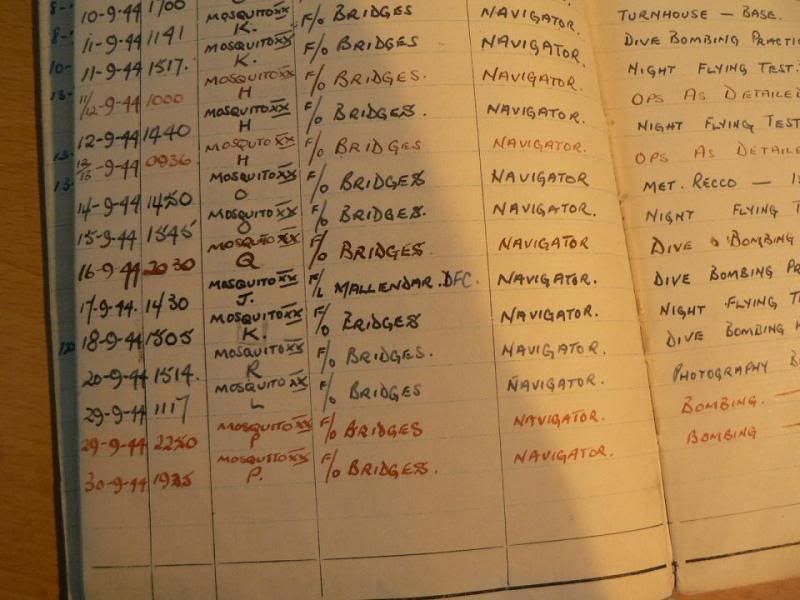 10-9-44 1700 TURNHOUSE — BASE.
11-9-44 1141 MOSQUITO XX K. F/O BRIDGES NAVIGATOR. DIVE BOMBING PRACTI
11-9-44 1517. MOSQUITO XX K. F/O BRIDGES NAVIGATOR. NIGHT FLYING TEST.
11/12-9-44 1000 MOSQUITO XX H F/O BRIDGES. NAVIGATOR. OPS AS DETAILED
12-9-44 1440 MOSQUITO XX H F/O BRIDGES. NAVIGATOR. NIGHT FLYING TEST
12/13-9-44 0936 MOSQUITO XX H F/O BRIDGES NAVIGATOR. OPS AS DETAILE
14-9-44 1450 MOSQUITO XX O F/O BRIDGES NAVIGATOR MET. RECCO —
15-9-44 1545 MOSQUITO XX O F/O BRIDGES. NAVIGATOR. NIGHT FLYING T
16-9-44 2030 MOSQUITO XX Q F/O BRIDGES. NAVIGATOR DIVE BOMBING
17-9-44. 1430 MOSQUITO XX J. F/L MALLENDAR. DFC. NAVIGATOR. DIVE BOMBING PR
18-9-44 1505 MOSQUITO XX K. F/O BRIDGES NAVIGATOR. NIGHT FLYING T
20-9-44 1514. MOSQUITO XX R F/O BRIDGES. NAVIGATOR. DIVE BOMBING
29-9-44 1117 MOSQUITO XX L F/O BRIDGES NAVIGATOR. PHOTOGRAPHY
29-9-44 2250 MOSQUITO XX P F/O BRIDGES NAVIGATOR. BOMBING. —
30-9-44 1935 MOSQUITO XX P. F/O BRIDGES. NAVIGATOR. BOMBING —